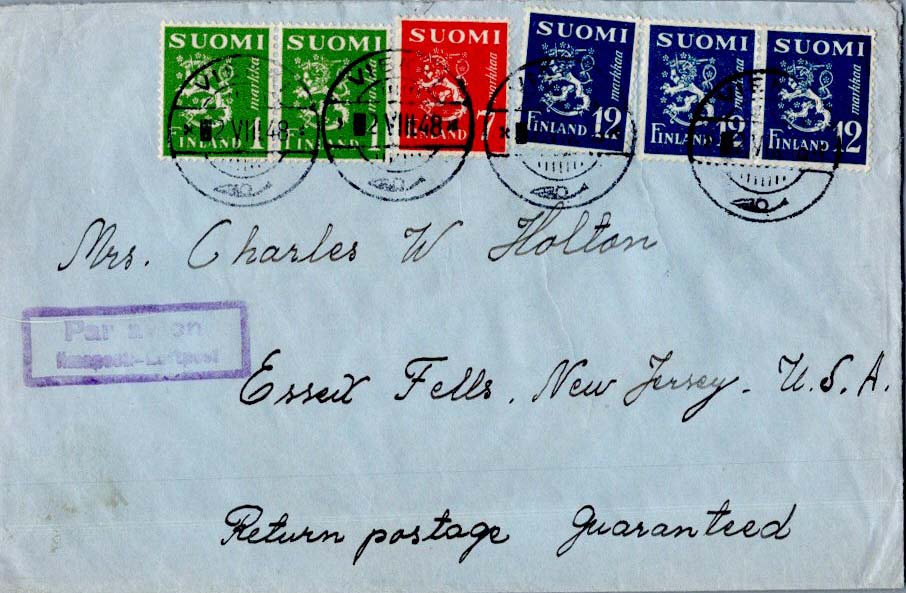 SUOMI SUOMI SUOMI SUOMI SUOMI SUOMI
markkaa markkaa markkaa markkaa
FINLAND 1 FINLAND 1 FINLAND 7 FINLAND 12 FINLAND 12 FINLAND 12
2.VIII.48 2.VIII.48
Mrs. Charles W Holton
Par avion
Lentoposti-Luftpost
Essex Fells, New Jersey. U.S.A.
Return postage guaranteed